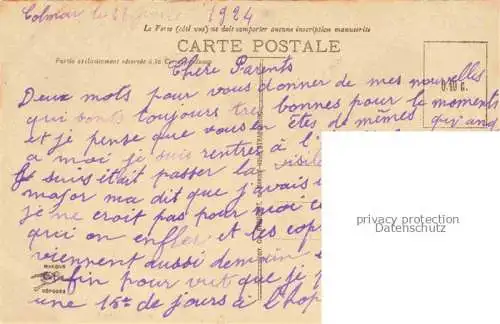 Colmar le 27 1924
Le Verso (côté vue) ne doit comporter aucune inscription manuscrite
CARTE POSTALE
Partie exclusivement réservée à la
Chere Parents
Deux mots pour vous donner de mes nouvelles
qui sont toujours tres bonnes pour le moment
et je pense que vous en êtes de mêmes quand
a moi je suis rentrés à l'
Je suis était passer la visite
major ma dit que j'avais
je me croit pas pour moi
qui on enfler et les cop
viennent aussi demain e
Enfin pour vut que je
une 15ne de jours à l'hop
0.40 G.
MARQUE
DÉPOSÉE
privacy protection
Datenschutz